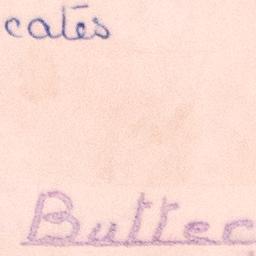 cates
Buttec